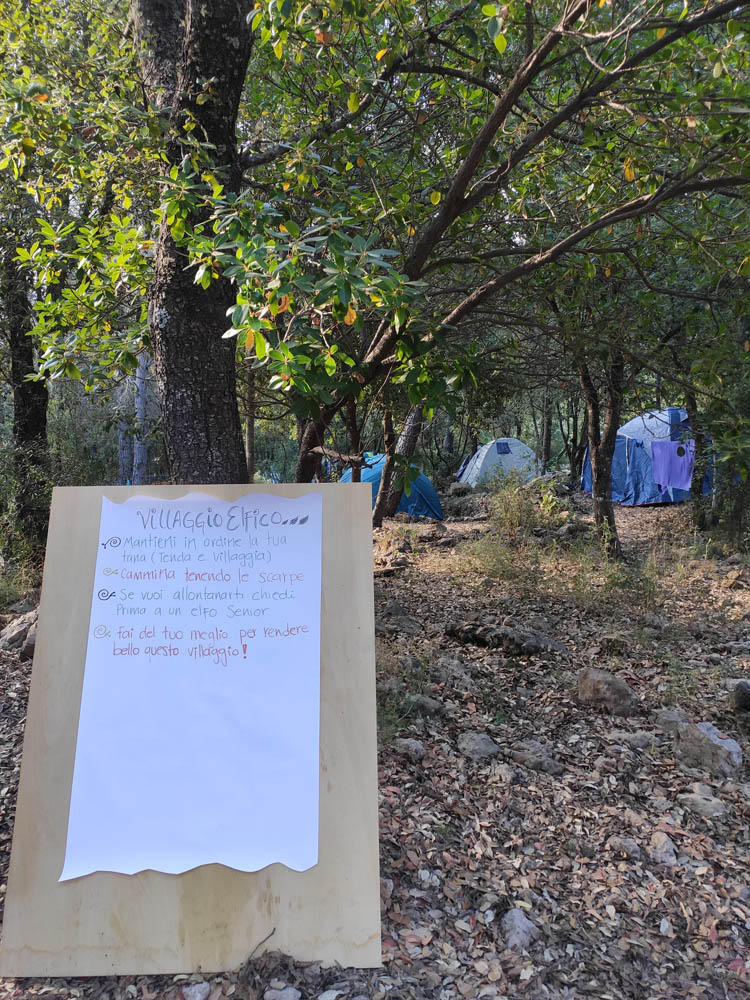 Villaggio Elfico...
Mantieni in ordine la tua
tana (Tenda e villaggio)
Cammina tenendo le scarpe
Se vuoi allontanarti chiedi
Prima a un elfo Senior
fai del tuo meglio per rendere
bello questo villaggio!